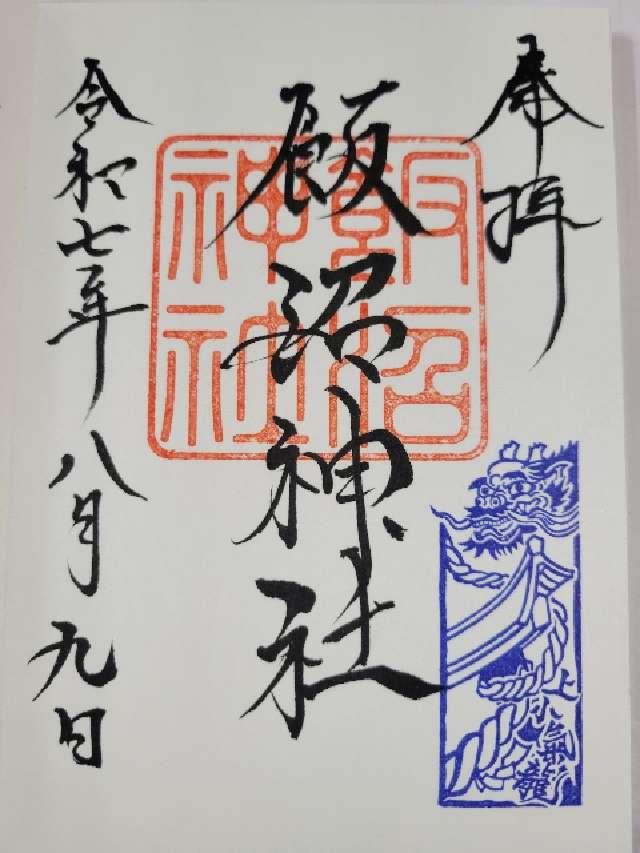 奉拝
飯沼神社
令和七年八月九日
飯沼
神社